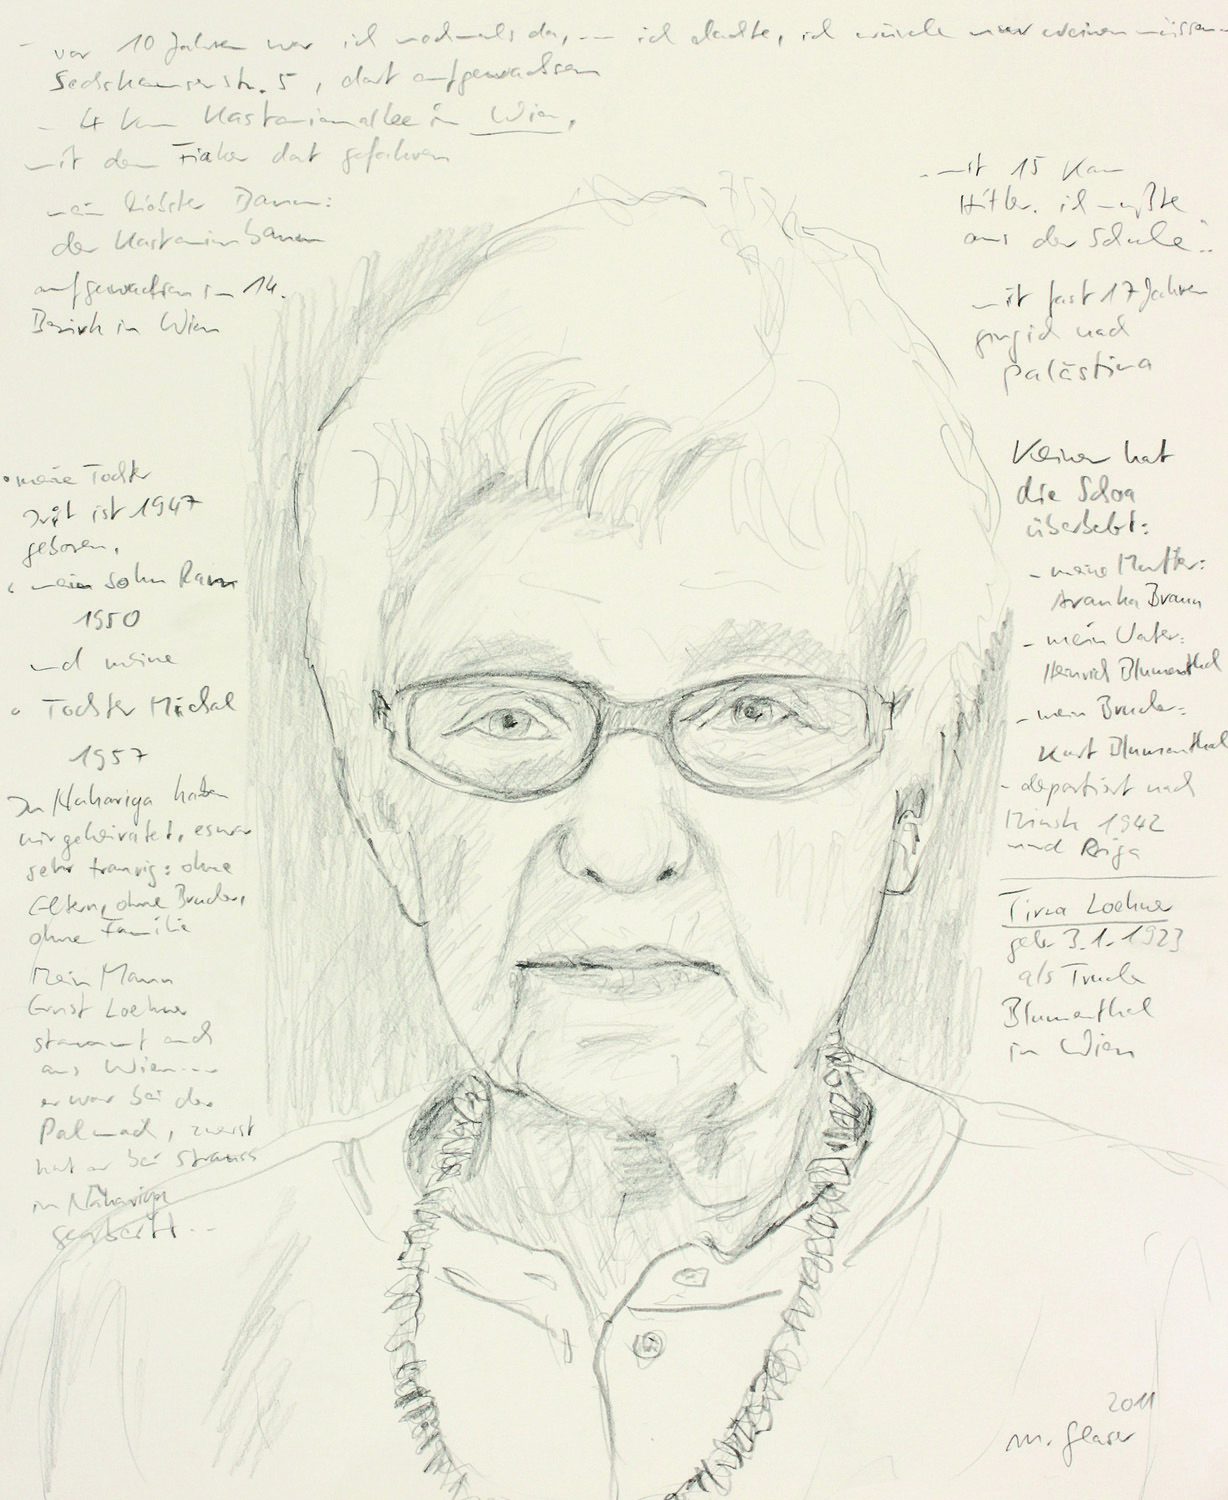 - vor 10 Jahren war ich nochmals da, -- ich dachte, ich würde nur weinen müssen --
Sechshauserstr. 5, dort aufgewachsen
- 4 km Kastanienallee in Wien,
mit dem Fiaker dort gefahren
mein liebster Baum:
der Kastanienbaum
aufgewachsen im 14.
Bezirk in Wien
- mit 15 kam
Hitler. ich mußte
aus der Schule..
mit fast 17 Jahren
ging ich nach
Palästina
• meine Tochter
ist 1947
geboren,
• mein Sohn Ram
1950
und meine
• Tochter Michal
1957
In Nahariya haben
wir geheiratet, es war
sehr traurig: ohne
Eltern, ohne Bruder,
ohne Familie
Mein Mann
Ernst Loehner
stammt auch
aus Wien ---
er war bei der
Palmach, zuerst
hat er bei Strauss
in Nahariya
gearbeitet --
Keiner hat
die Schoa
überlebt:
- meine Mutter:
Aranka Braun
- mein Vater:
Heinrich Blumenthal
- mein Bruder:
Kurt Blumenthal
- deportiert nach
Minsk 1942
und Riga
Tirza Loehner
geb 3.1.1923
als Trude
Blumenthal
in Wien
2011
M. Glaser